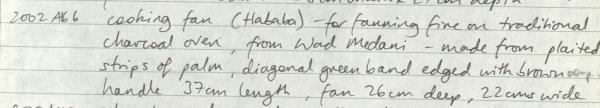 2002 AF6 cooking fan (Hababa) - for fanning fire on traditional
charcoal oven, from Wad Medani - made from plaited
strips of palm, diagonal green band edged with brown
handle 37cm length, fan 26cm deep, 22cms wide